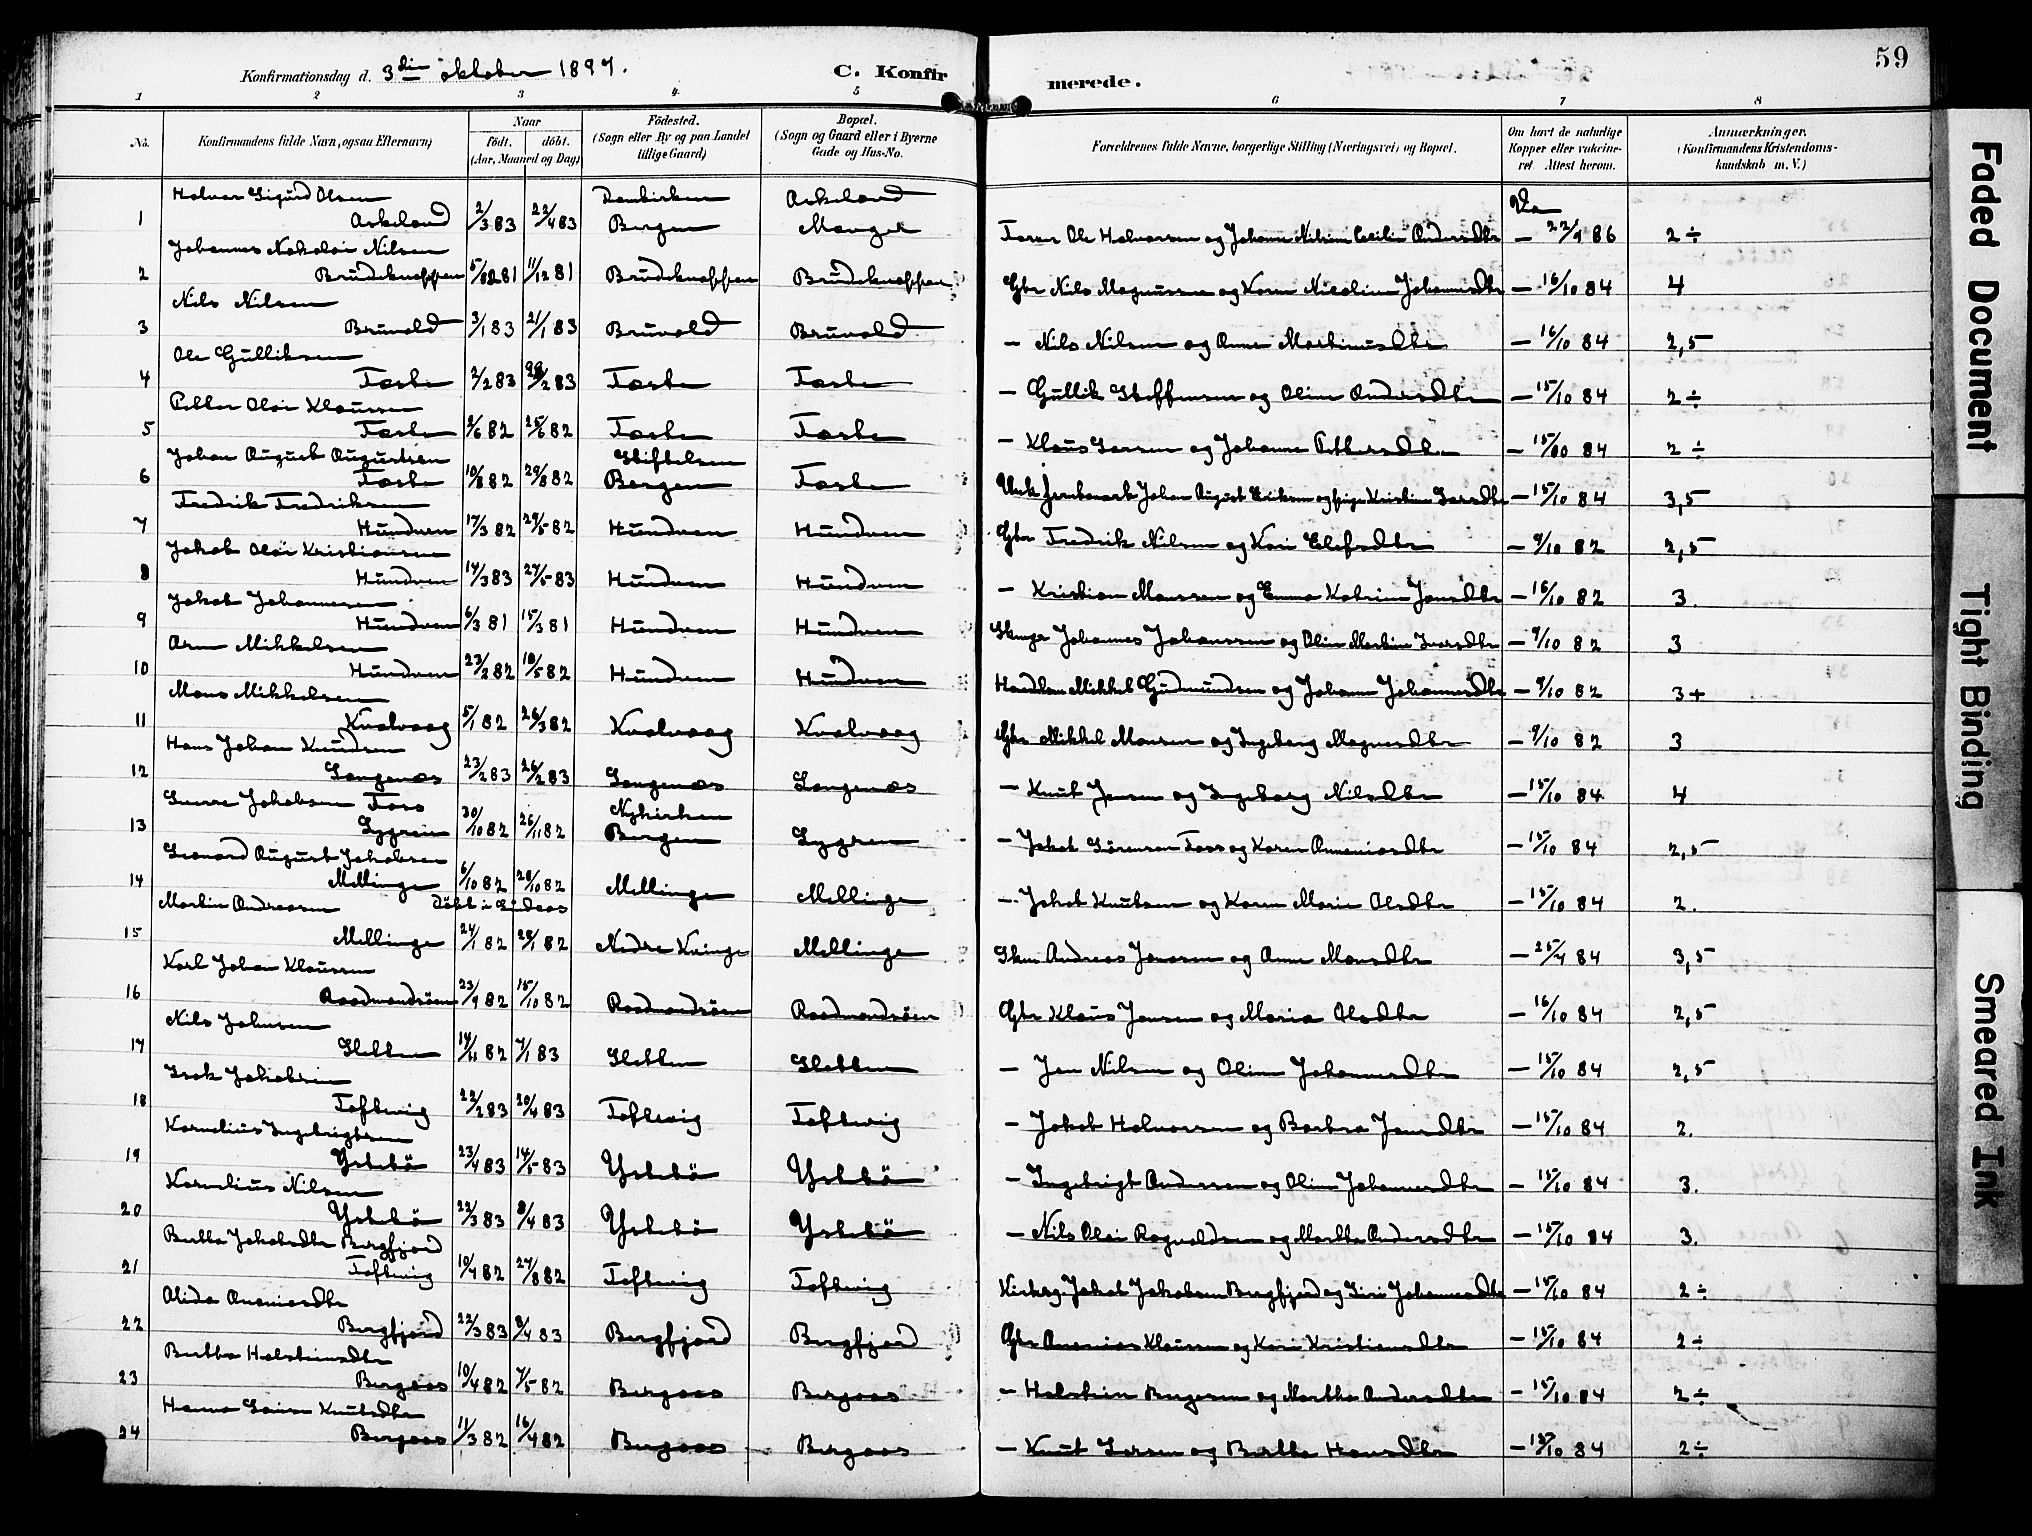 59
Konfirmationsdag d. 3die oktober 1897. C. Konfirmerede.
1 2 3 4 5 6 7 8
No. Konfirmandens fulde Navn, ogsaa Efternavn) Naar født. døbt. (Aar, Maaned og Dag) Fødested. (Sogn eller By og paa Landet tillige Gaard) Bopæl. (Sogn og Gaard eller i Byerne Gade og Hus-No. Forældrenes fulde Navne, borgerlige Stilling (Næringsvei) og Bopæl. Om havt de naturlige Kopper eller vakcineret. Attest herom. Anmærkninger. (Konfirmandens Kristendomskundskab m. V.)
Halvor Sigurd Olsen Domkirken Askeland Va
1 Askeland 2/3 83 22/4 83 Bergen Manger Farver Ole Halvorsen og Johanne Nilsine Cecilie Andersdtr — 22/9 86 2 ÷
Johannes Nikolai Nilsen
2 Brudeknappen 81 11/12 81 Brudeknappen Brudeknappen Gbr Nils Magnussen og Karen Nicoline Johannesdtr — 16/10 84 4
Nils Nilsen
3 Bruvold 3/1 83 21/1 83 Bruvold Bruvold — Nils Nilsen og Anne Martinusdtr — 16/10 84 2,5
Ole Gulliksen
4 Toska 2/2 83 /2 83 Toska Toska — Gullik Steffensen og Oline Andersdtr — 15/10 84 2 ÷
Petter Olai Klaussen
5 Toska 2/6 82 25/6 82 Toska Toska — Klaus Larsen og Johanne Pettersdtr — 15/10 84 2 ÷
Johan August Augustsen Stiftelsen
6 Toska 10/8 82 29/8 82 Bergen Toska Johan August Eriksen og pige Kristine Larsdtr — 15/10 84 3,5
Fredrik Fredriksen
7 Hundven 17/3 82 29/5 82 Hundven Hundven Gbr Fredrik Nilsen og Kari Elefsdtr — 9/10 82 2,5
Jakob Olai Kristiansen
8 Hundven 14/3 83 27/5 83 Hundven Hundven — Kristian Monssen og Emma Katrine Jansdtr — 16/10 82 3.
Jakob Johannesen
9 Hundven 6/3 81 15/3 81 Hundven Hundven Johannes Johanssen og Oline Martine Ivarsdtr — 9/10 82 3
Arne Mikkelsen
10 Hundven 23/2 82 10/5 82 Hundven Hundven Mikkel Gudmundsen og Johanne Johannesdtr — 9/10 82 3+
Mons Mikkelsen
11 Kvalvaag 5/1 82 26/3 82 Kvalvaag Kvalvaag Gbr Mikkel Monsen og Ingeborg Magnesdtr — 9/10 82 3
Hans Johan Knudsen
12 Langenæs 23/2 83 26/2 83 Langenæs Langenæs — Knut Jensen og Ingeborg Nilsdtr — 15/10 84 4
Sverre Jakobsen Foss Nykirken
13 Lygren 30/10 82 26/11 82 Bergen Lygren — Jakob Sørensen Foss og Karen Ananiasdtr — 15/10 84 2,5
Leonard August Jakobsen
14 Mellinge 6/10 82 20/10 82 Mellinge Mellinge — Jakob Knutsen og Karen Marie Olsdtr — 15/10 84 2.
Martin Andreassen Døbt i Lindaas
15 Mellinge 24/1 82 29/1 82 Nedre Kvinge Mellinge Andreas Jonassen og Anne Monsdtr — 25/4 84 3,5
Karl Johan Klaussen
16 Raadmandsøen 23/9 82 15/10 82 Raadmandsøen Raadmandsøen Gbr Klaus Jensen og Maria Olsdtr — 16/10 84 2,5
Nils Johnsen
17 Sletten 14/11 82 7/1 83 Sletten Sletten — Jon Nilsen og Oline Johannesdtr — 15/10 84 2,5
Isak Jakobsen
18 Toftevig 22/2 83 20/4 83 Toftevig Toftevig — Jakob Halvorsen og Barbra Jansdtr — 15/10 84 2.
Kornelius Ingebrigtsen
19 Ystebø 23/4 83 14/5 83 Ystebø Ystebø — Ingebrigt Andersen og Oline Johannesdtr — 15/10 84 3.
Kornelius Nilsen
20 Ystebø 22/3 83 8/4 83 Ystebø Ystebø — Nils Olai Ragnvaldsen og Martha Andersdtr — 15/10 84 3.
Bertha Jakobsdtr Bergfjord
21 Toftevig 10/7 82 27/8 82 Toftevig Toftevig Kirkesg. Jakob Jakobsen Bergfjord og Siri Johannesdtr — 15/10 84 2 ÷
Alida Ananiasdtr
22 Bergfjord 22/3 83 8/4 83 Bergfjord Bergfjord Gbr Ananias Klaussen og Kari Kristiansdtr — 15/10 84 2 ÷
Bertha Holsteinsdtr
23 Bergaas 10/4 82 7/5 82 Bergaas Bergaas — Holstein Børgesen og Martha Andersdtr — 15/10 84 2 ÷
Hanna Lovise Knutsdtr
24 Bergaas 11/3 82 16/4 82 Bergaas Bergaas — Knut Larsen og Bertha Hansdtr — 15/10 84 2 ÷
Faded Document
Tight Binding
Smeared Ink